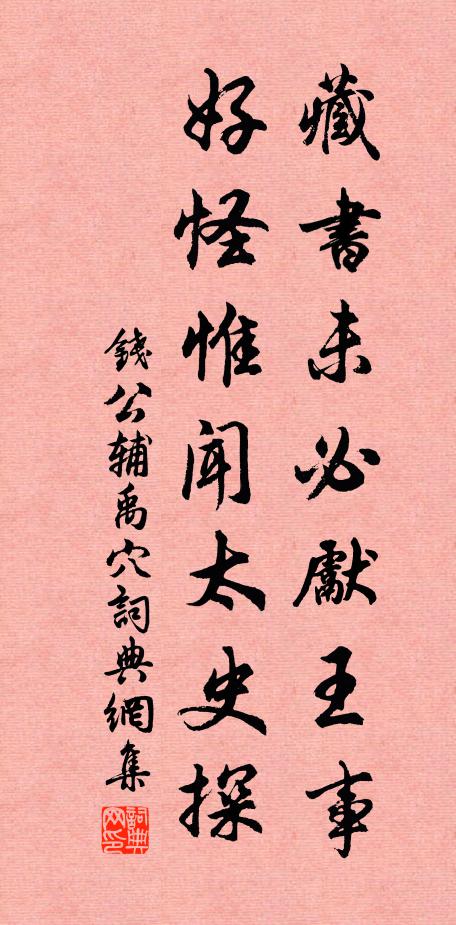 藏書未必獻王事
好怪惟聞太史探
錢公輔禹穴詞典網集
詞典网印